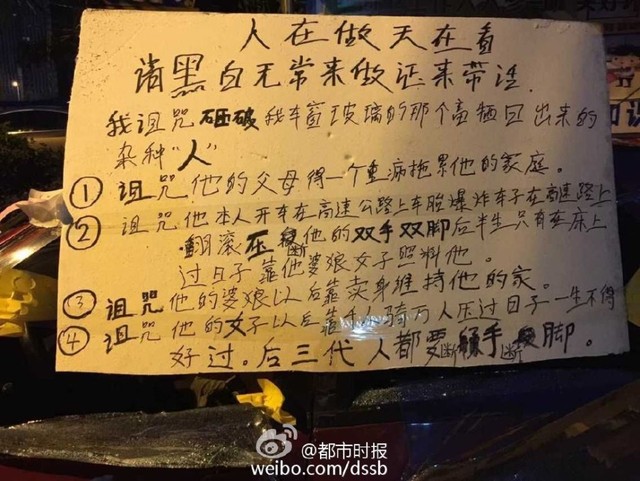 人在做天在看
请黑白无常来做证来带话.
我诅咒砸破我车窗玻璃的那个畜牲日出来的
杂种“人”
① 诅咒他的父母得一个重病拖累他的家庭。
② 诅咒他本人开车在高速公路上车胎爆炸车子在高速路上
翻滚压断他的双手双脚后半生只有在床上
过日子靠他婆娘女子照料他。
③ 诅咒他的婆娘以后靠卖身维持他的家。
④ 诅咒他的女子以后靠千人骑万人压过日子一生不得
好过。后三代人都要断手断脚。
@都市时报
weibo.com/dssb